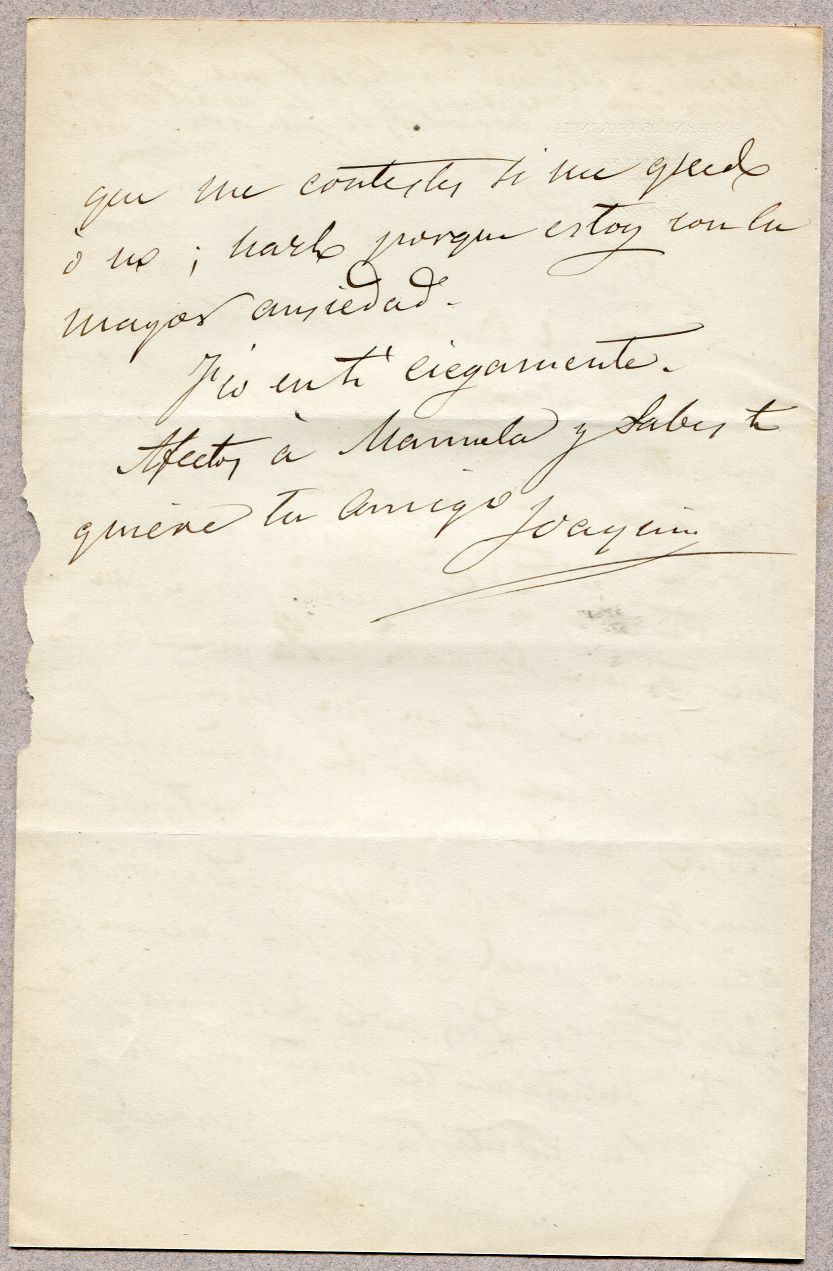 que me contestes si me quedo
ò no; hazlo porque estoy con la
mayor ansiedad.
Fio en ti ciegamente.
Afectos à Manuela y sabes te
quiere tu amigo Joaquin